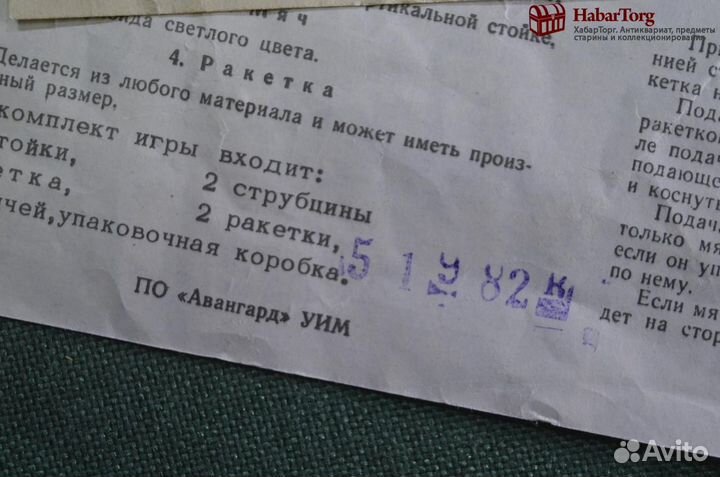 HabarTorg
ХабарТорг. Антиквариат, предметы
старины и коллекционирования
Мяч
светлого цвета.
стойке,
4. Ракетка
Делается из любого материала и может иметь произ-
ный размер.
комплект игры входит:
тойки,
2 струбцины
етка,
2 ракетки,
чей, упаковочная коробка.
ПО «Авангард» УИМ
5 1 9 82
При
нией с
кетка н
Пода
ракеткой
ле подач
подающе
и коснуть
Подача
только мя
если он уп
по нему.
Если мя
дет на стор
Avito